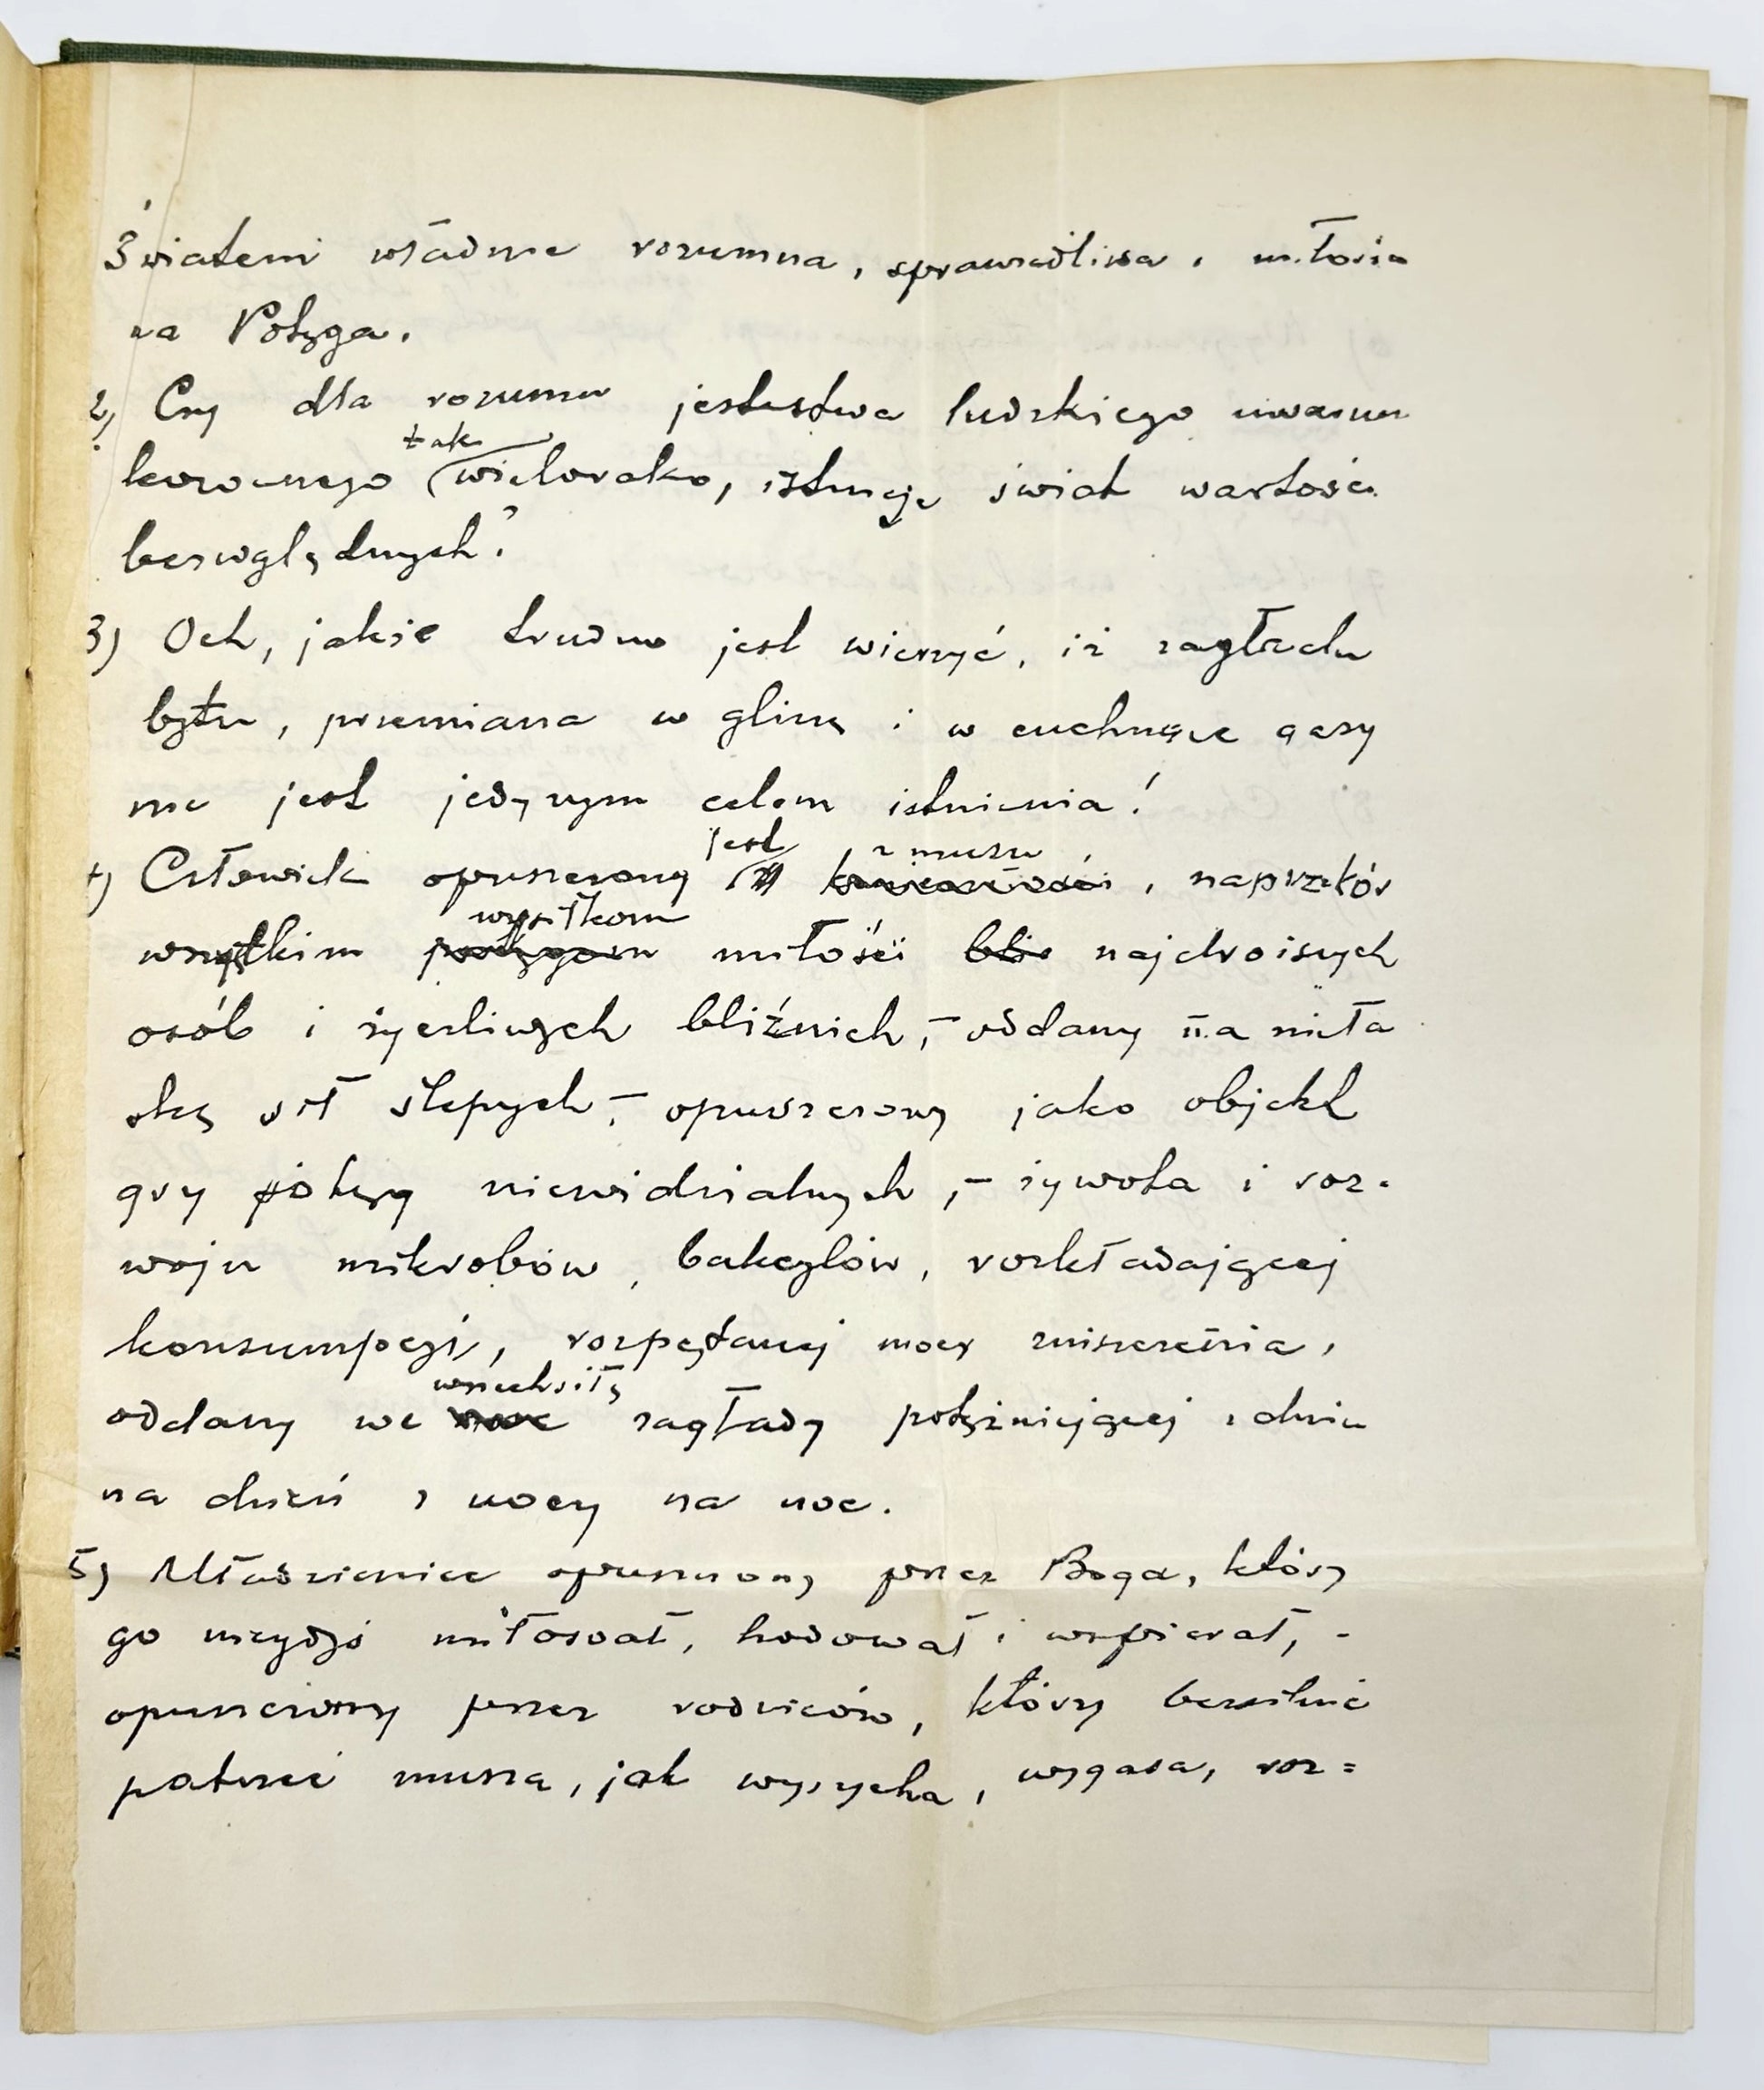 Światem władnie rozumna, sprawiedliwa, miłosier
na Potęga.
2) Czy dla rozumu jestestwa ludzkiego uwarun
kowanego tak wielorako, istnieje świat wartości
bezwzględnych?
3) Och, jakże trudno jest wierzyć, iż zagłada
bytu, przemiana w glinę i w cuchnące gazy
nie jest jedynym celem istnienia!
4) Człowiek opuszczony jest z musu, naprzekór
wszystkim wysiłkom miłości najdroższych
osób i życzliwych bliźnich, – oddany na nieła
skę sił ślepych, – opuszczony jako objekt
gry potęg niewidzialnych, – żywota i roz-
woju mikrobów, bakcylów, rozkładającej
konsumpcji, rozpętanej mocy zniszczenia,
oddany we wszechsiłę zagłady potężniejącej z dnia
na dzień z nocy na noc.
5) Młodzieniec opuszczony przez Boga, który
go niegdyś miłował, hodował i wspierał, -
opuszczony przez rodziców, którzy bezsilnie
patrzeć muszą, jak wysycha, wygasa, roz=